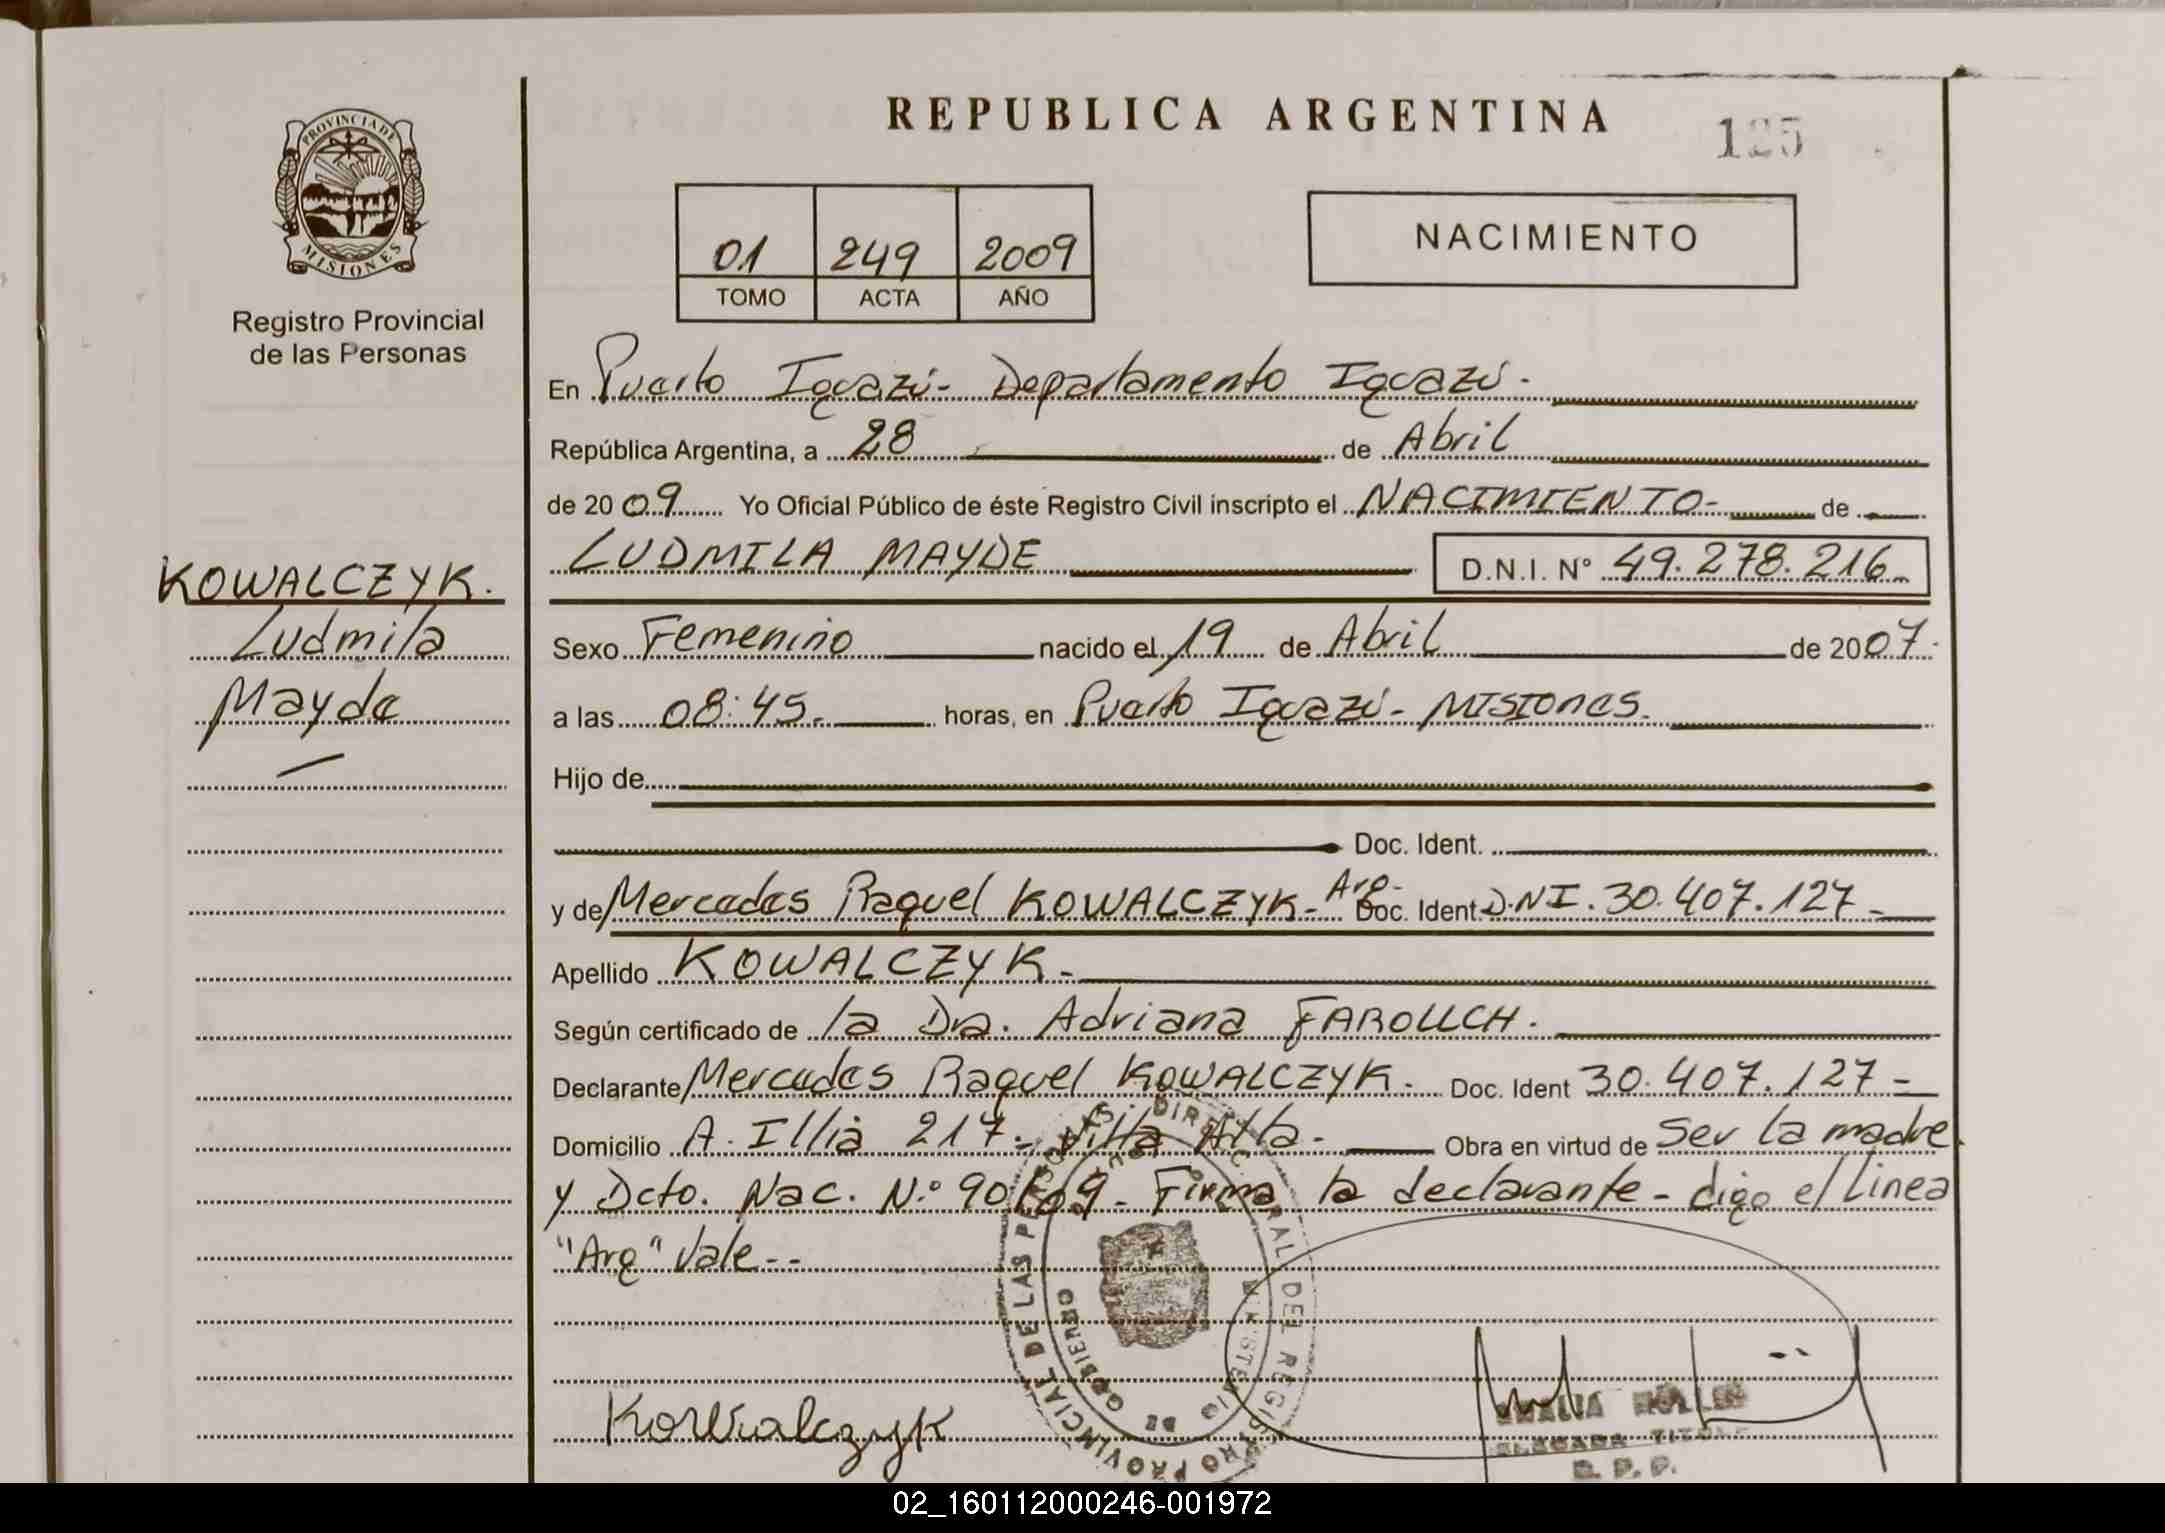 REPUBLICA ARGENTINA
125
PROVINCIA DE
MISIONES
Registro Provincial
de las Personas
01 249 2009
TOMO ACTA AÑO
NACIMIENTO
En Puerto Iguazú - Departamento Iguazú -
República Argentina, a 28 de Abril
de 2009 Yo Oficial Público de éste Registro Civil inscripto el NACIMIENTO - de
LUDMILA MAYDE D.N.I. Nº 49.278.216
KOWALCZYK.
Ludmila
Mayde
Sexo Femenino nacido el 19 de Abril de 2007
a las 08:45. horas, en Puerto Iguazú - MISIONES.
Hijo de
Doc. Ident.
y de Mercedes Raquel KOWALCZYK - Arg - Doc. Ident D.N.I. 30.407.127 -
Apellido KOWALCZYK -
Según certificado de la Dra. Adriana FAROUCH.
Declarante Mercedes Raquel KOWALCZYK - Doc. Ident 30.407.127 -
Domicilio A. Illia 217 - Villa Alta - Obra en virtud de Ser la madre
y Dcto. Nac. N.º 90/09 - Firma la declarante - digo e/ Linea
"Arg" Vale - -
Kowalczyk
DE LAS PERSONAS
DEL REGISTRO PROVINCIAL
MINISTERIO DE GOBIERNO
D. P. P.
02_160112000246-001972